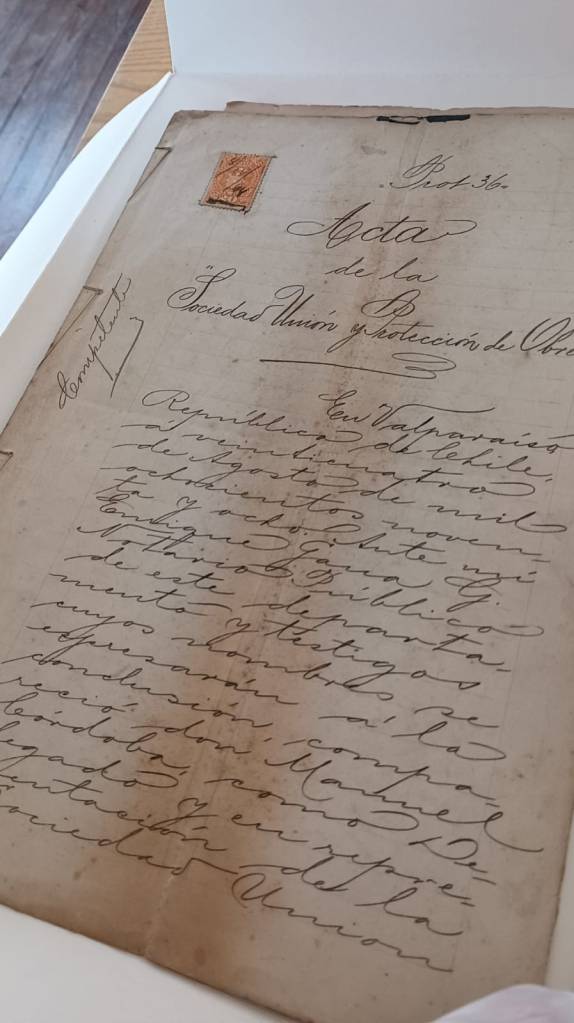 Prot 36.
Acta
de la
"Sociedad Unión y Protección de Obre
Competente
En Valparaíso
República de Chile,
á veinticuatro
de Agosto de mil
ochocientos noven-
ta y ocho. Ante mí
Enrique Gana G.
Notario Público
de este departa-
mento y testigos
cuyos nombres se
espresarán á la
conclusión, compa-
reció don Manuel
Córdoba, como De-
legado y en repre-
sentación de la
Sociedad Union